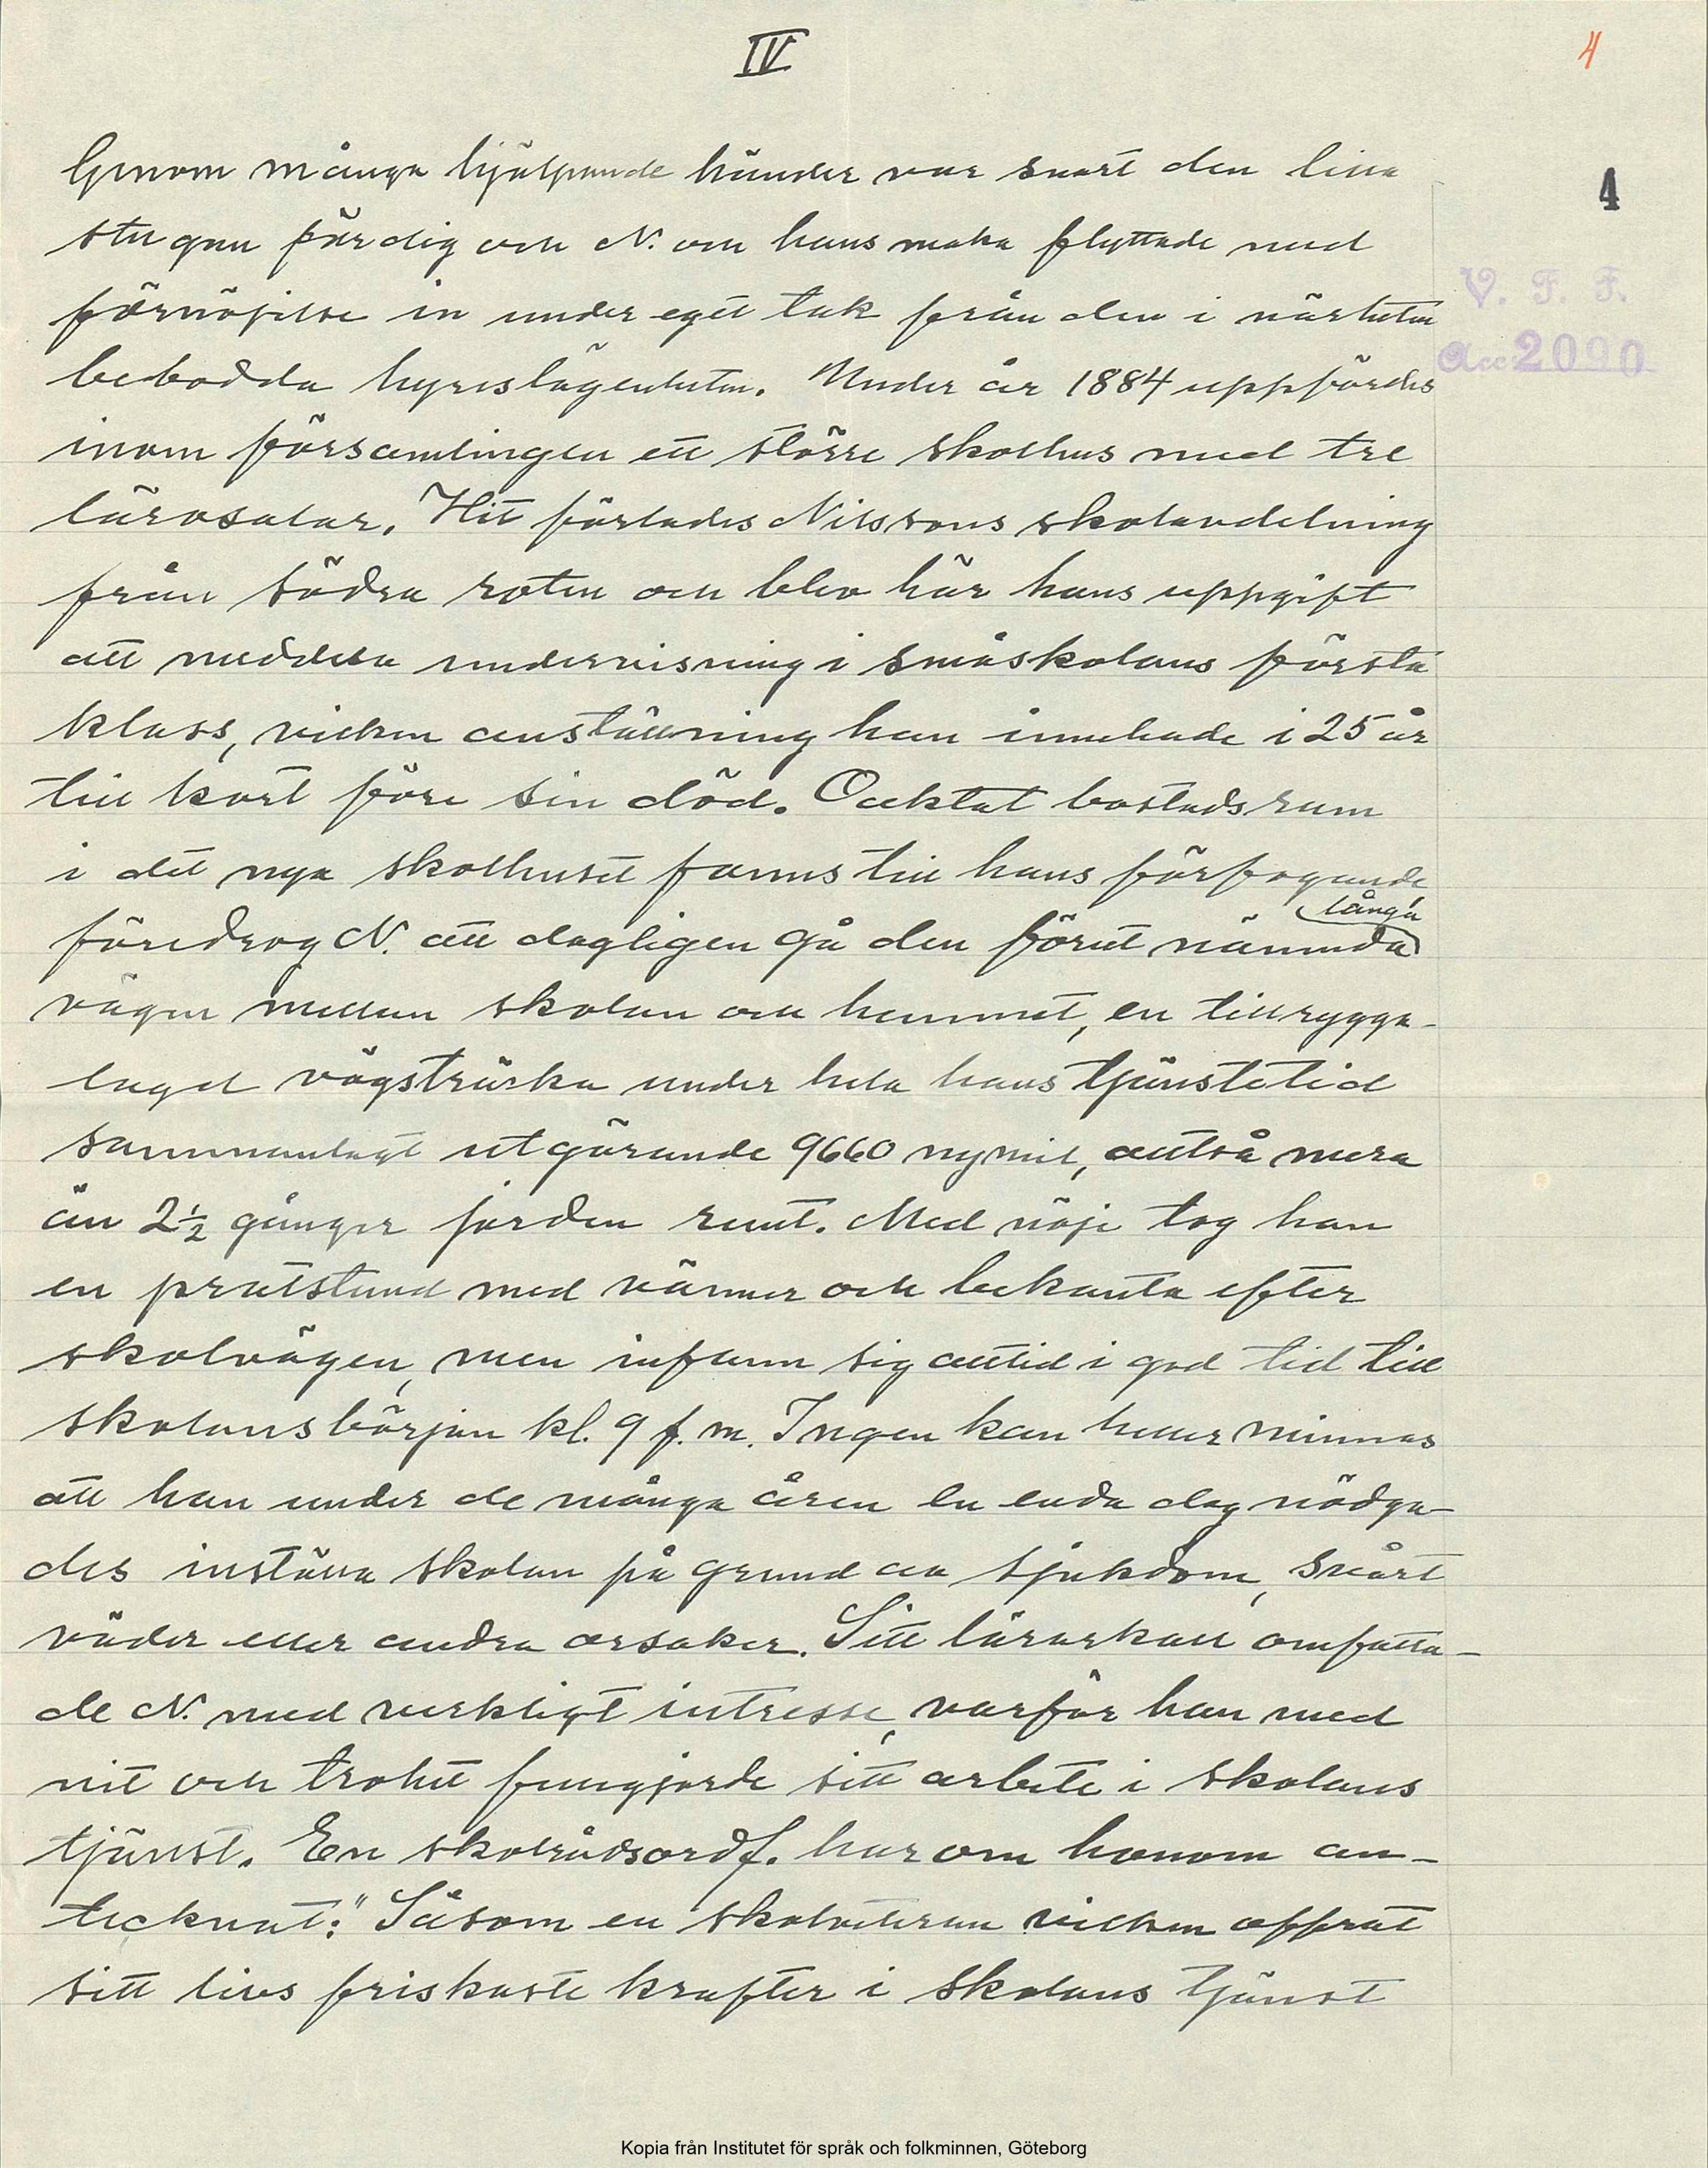 IV
4
4
Genom många hjälpande händer var snart den lilla
stugan färdig och N. och hans maka flyttade med
förnöjelse in under eget tak från den i närheten
V. F. F.
bebodda hyreslägenheten. Under år 1884 uppfördes
Acc 2090
inom församlingen ett större skolhus med tre
lärosalar. Hit förlades Nilssons skolavdelning
från södra roten och blev här hans uppgift
att meddela undervisning i småskolans första
klass, vilken anställning han innehade i 25 år
till kort före sin död. Oaktat bostadsrum
i det nya skolhuset fanns till hans förfogande
långa
föredrog N. att dagligen gå den förut nämnda
vägen mellan skolan och hemmet, en tillrygga-
lagd vägsträcka under hela hans tjänstetid
sammanlagt utgörande 9660 nymil, alltså mera
än 2½ gånger jorden runt. Med nöje tog han
en pratstund med vänner och bekanta efter
skolvägen, men infann sig alltid i god tid till
skolans början kl. 9 f. m. Ingen kan heller minnas
att han under de många åren en enda dag nödga-
des inställa skolan på grund av sjukdom, svårt
väder eller andra orsaker. Sitt lärarkall omfatta-
de N. med verkligt intresse, varför han med
nit och trohet fungjorde sitt arbete i skolans
tjänst. En skolrådsordf. har om honom an-
tecknat: "Såsom en skolveteran vilken offrat
sitt livs friskaste krafter i skolans tjänst
Kopia från Institutet för språk och folkminnen, Göteborg